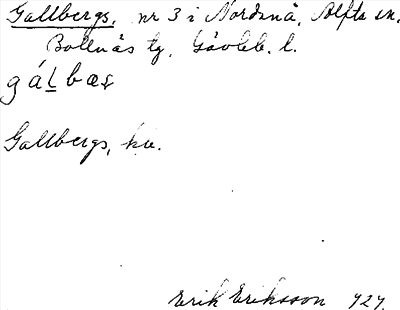 Gallbergs, nr 3 i Nordsnå, Alfta sn.
Bollnäs tg, Gävleb. l.
gálbæs
Gallbergs, kv.
Erik Eriksson 1927.